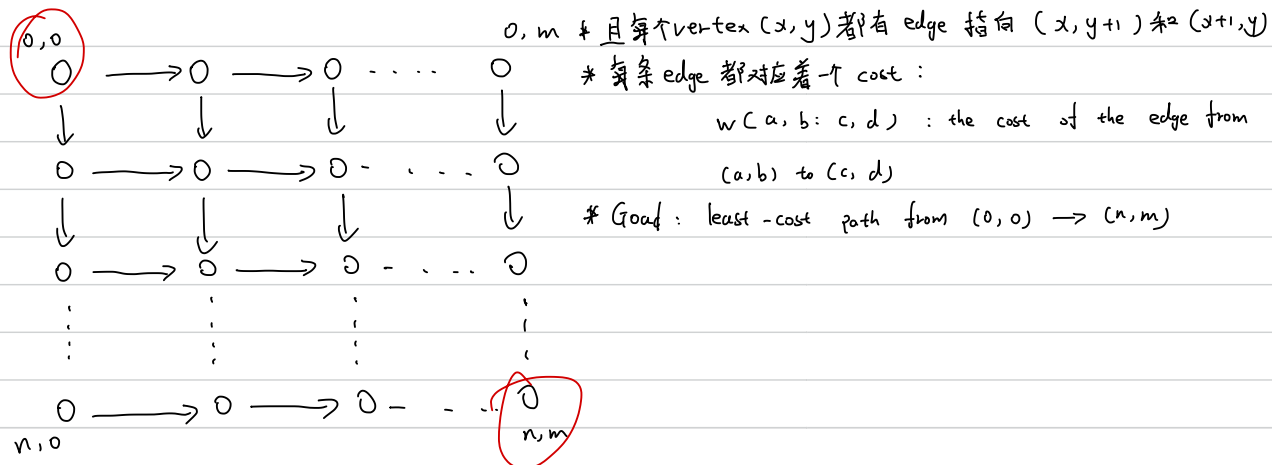 0,0
0,m * 且每个vertex (x,y)都有 edge 指向 (x,y+1) 和 (x+1,y)
* 每条 edge 都对应着一个 cost :
w(a, b: c, d) : the cost of the edge from
(a,b) to (c, d)
* Goal : least-cost path from (0,0) → (n,m)
n,0
n,m